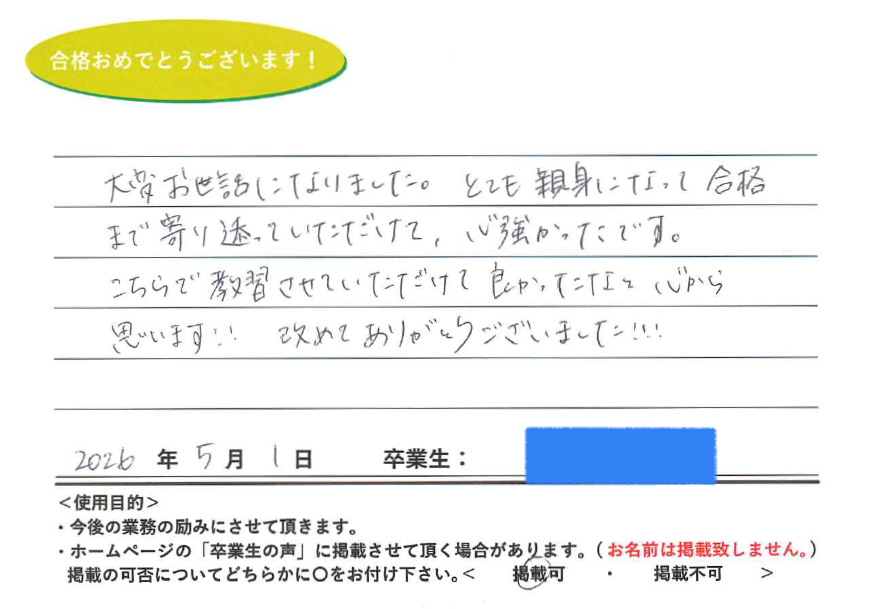 合格おめでとうございます！
大変お世話になりました。とても親身になって合格
まで寄り添っていただけて、心強かったです。
こちらで教習させていただけて良かったなと心から
思います!! 改めてありがとうございました!!!
2026年5月1日 卒業生：
＜使用目的＞
・今後の業務の励みにさせて頂きます。
・ホームページの「卒業生の声」に掲載させて頂く場合があります。（お名前は掲載致しません。）
掲載の可否についてどちらかに〇をお付け下さい。＜ 掲載可 ・ 掲載不可 ＞